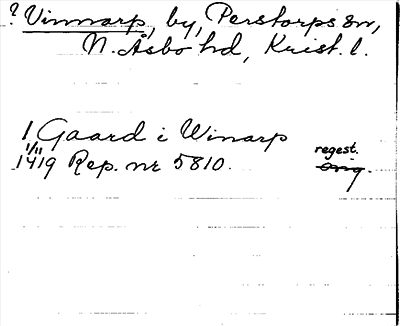 ? Vinnarp, by, Perstorps sn,
N. Åsbo hd, Krist. l.
1 Gaard i Winarp
1/11
1419 Rep. nr 5810.
regest.
orig.